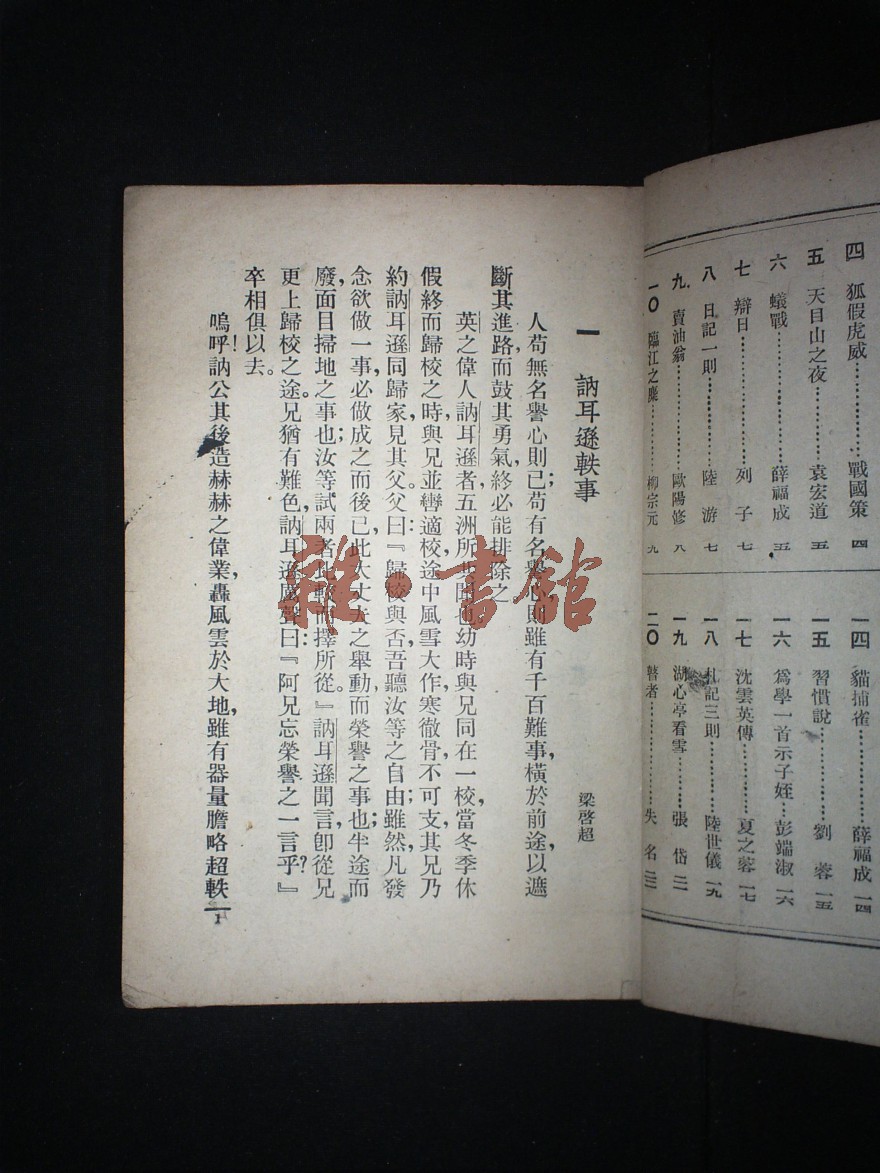 四 狐假虎威…………戰國策 四
五 天目山之夜………袁宏道 五
六 蟻戰………………薛福成 五
七 辯日………………列子 七
八 日記一則…………陸游 七
九 賣油翁……………歐陽修 八
一〇 臨江之麋………柳宗元 九
一四 貓捕雀…………薛福成 一四
一五 習慣說…………劉蓉 一五
一六 爲學一首示子姪…彭端淑 一六
一七 沈雲英傳………夏之蓉 一七
一八 札記三則………陸世儀 一九
一九 湖心亭看雪……張岱 二一
二〇 瞽者……………失名 二二
一 訥耳遜軼事
梁啓超
人苟無名譽心則已；苟有名譽心則雖有千百難事，橫於前途，以遮
斷其進路，而鼓其勇氣，終必能排除之。
英之偉人訥耳遜者，五洲所也。幼時與兄同在一校，當冬季休
假終而歸校之時，與兄並轡適校，途中風雪大作，寒徹骨不可支，其兄乃
約訥耳遜同歸家見其父。父曰：『歸校與否，吾聽汝等之自由；雖然，凡發
念欲做一事，必做成之而後已，此大丈夫之舉動，而榮譽之事也；半途而
廢，面目掃地之事也；汝等試兩者比較而擇所從。』訥耳遜聞言，卽從兄
更上歸校之途。兄猶有難色，訥耳遜厲聲曰：『阿兄忘榮譽之一言乎？』
卒相俱以去。
嗚呼！訥公其後造赫赫之偉業，轟風雲於大地，雖有器量膽略超軼
1
雜·書館